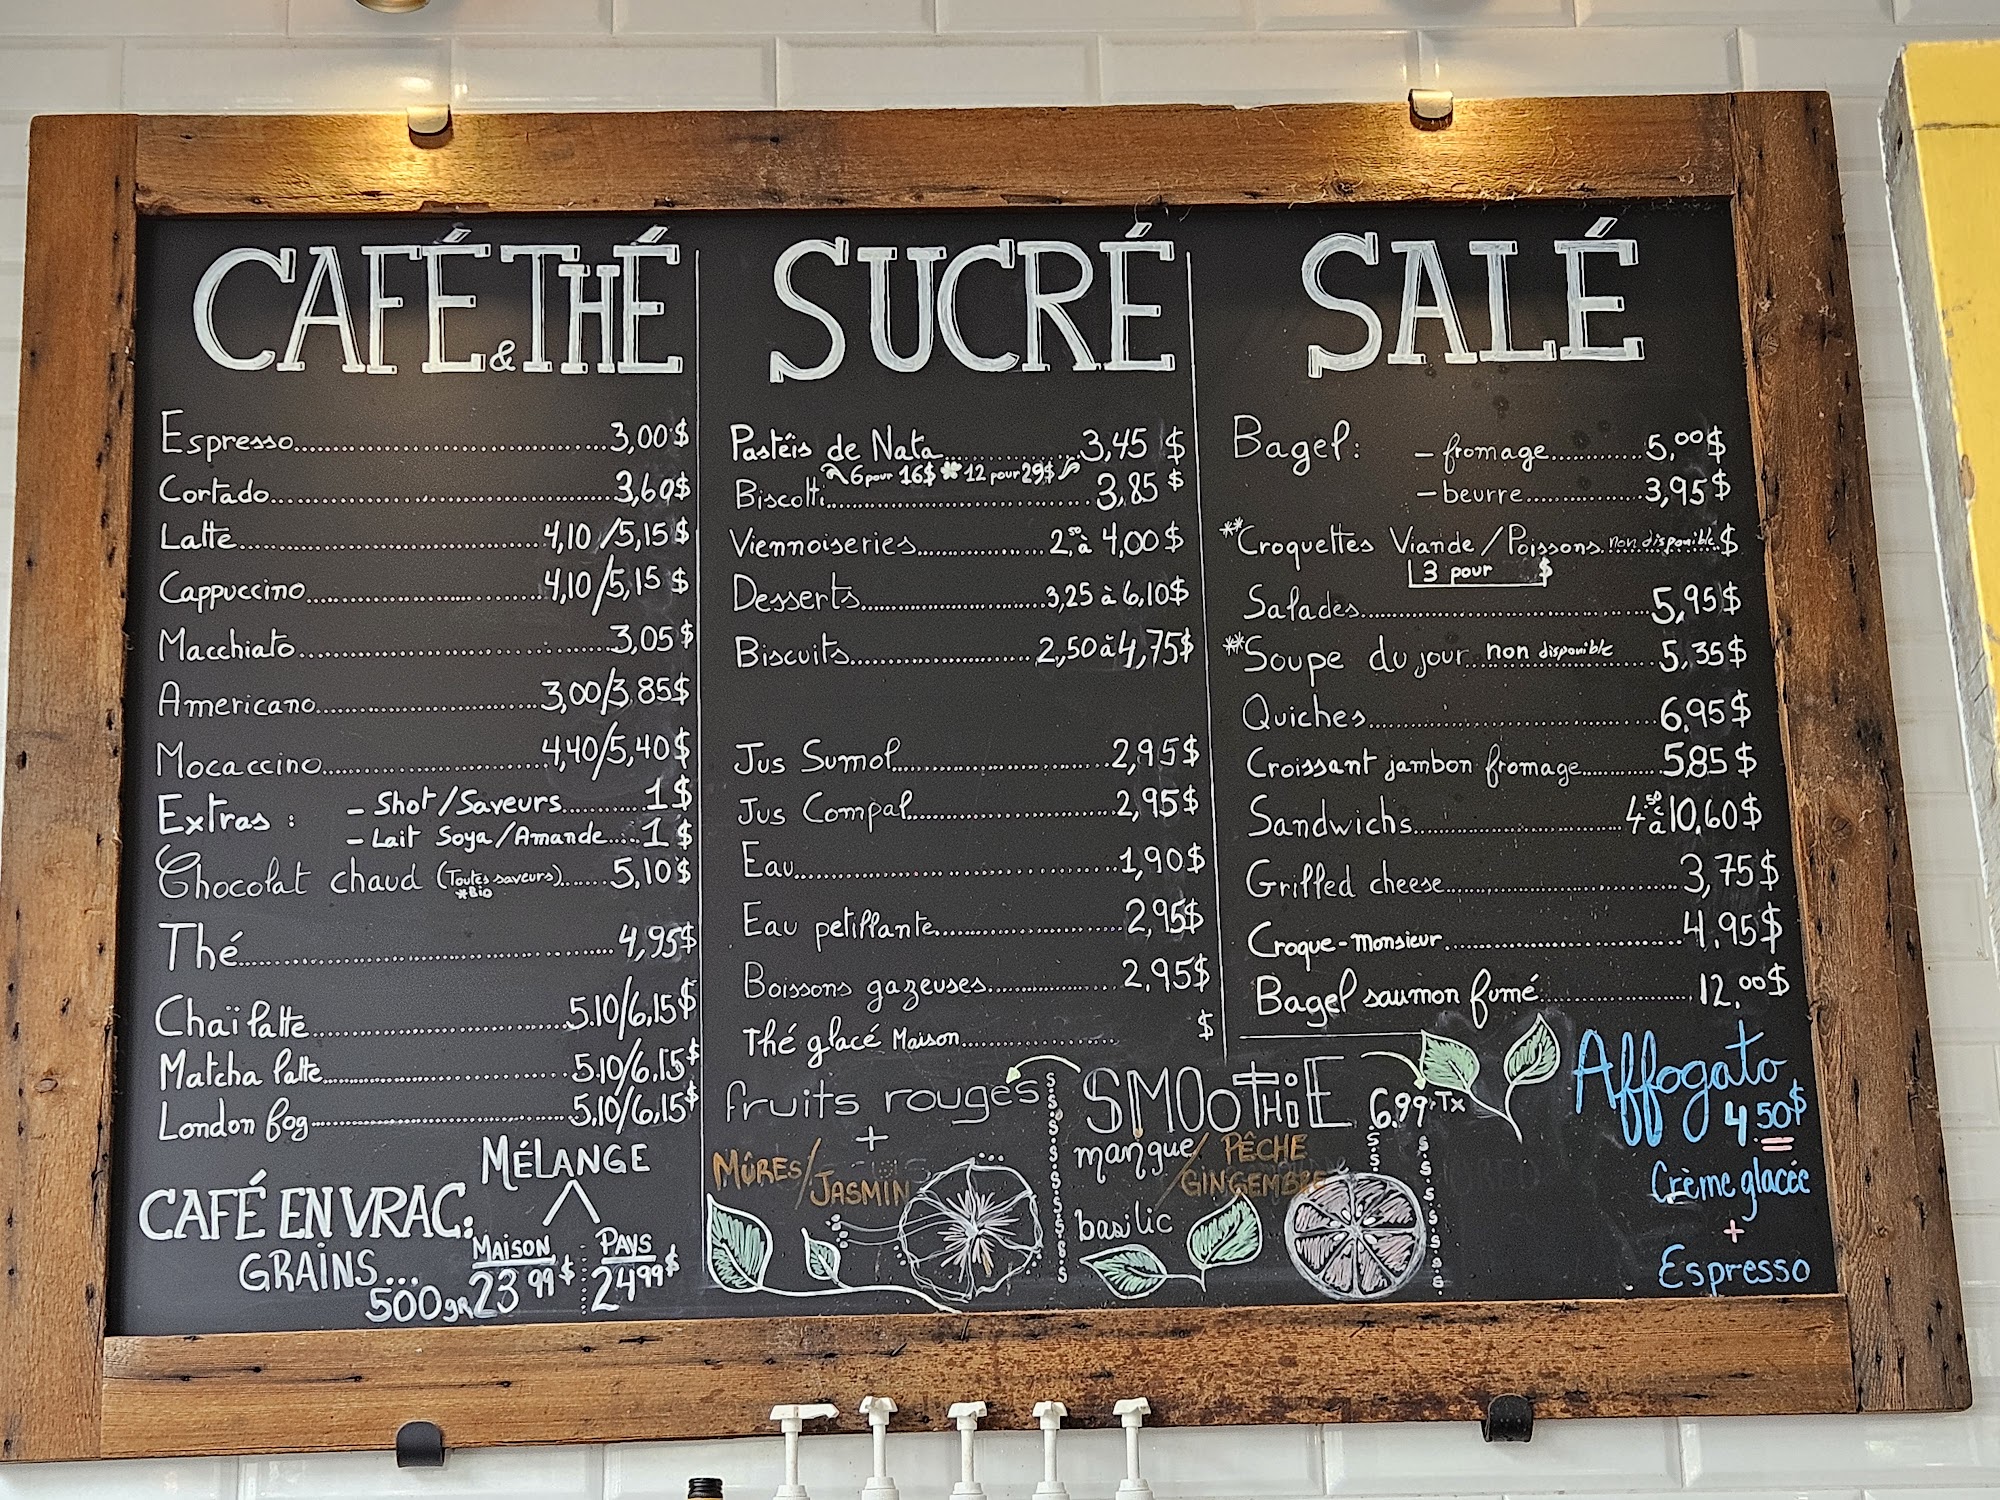 CAFÉ & THÉ
Espresso 3,00$
Cortado 3,60$
Latte 4,10/5,15$
Cappuccino 4,10/5,15$
Macchiato 3,05$
Americano 3,00/3,85$
Mocaccino 4,40/5,40$
Extras : - Shot/Saveurs 1$
- Lait Soya/Amande 1$
Chocolat chaud (Toutes saveurs) 5,10$
*Bio
Thé 4,95$
Chaï latte 5.10/6,15$
Matcha latte 5.10/6,15$
London fog 5,10/6,15$
MÉLANGE
CAFÉ EN VRAC:
GRAINS...
500gr
MAISON
23 99$
PAYS
24 99$
SUCRÉ
Pastéis de Nata 3,45 $
6 pour 16$ 12 pour 29$
Biscotti 3,85 $
Viennoiseries 2,50 à 4,00$
Desserts 3,25 à 6,10$
Biscuits 2,50 à 4,75$
Jus Sumol 2,95$
Jus Compal 2,95$
Eau 1,90$
Eau petillante 2,95$
Boissons gazeuses 2,95$
Thé glacé Maison $
SALÉ
Bagel: - fromage 5,00$
- beurre 3,95$
**Croquettes Viande/Poissons non disponible $
3 pour $
Salades 5,95$
**Soupe du jour non disponible 5,35$
Quiches 6,95$
Croissant jambon fromage 5,85$
Sandwichs 4,50 à 10,60$
Grilled cheese 3,75$
Croque-monsieur 4,95$
Bagel saumon fumé 12,00$
SMOOTHiE 6.99+Tx
fruits rouges
+
MÛRES/JASMIN
mangue/PÊCHE GINGEMBRE
basilic
Affogato
4.50$
Crème glacée
+
Espresso